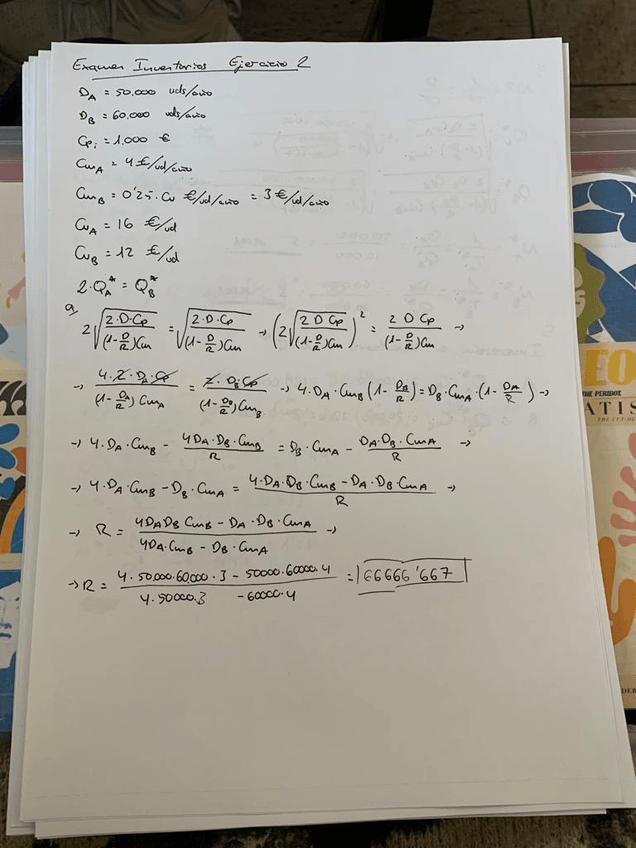 Examen Inventarios Ejercicio 2
D_A = 50.000 uds/año
D_B = 60.000 uds/año
Cp_i = 1.000 €
Cm_A = 4 €/ud/año
Cm_B = 0'25·Cu €/ud/año = 3 €/ud/año
Cu_A = 16 €/ud
Cu_B = 12 €/ud
2·Q_A^* = Q_B^*
a) 2√(2·D·Cp / (1-D/R)Cm) = √(2·D·Cp / (1-D/R)Cm) → (2√(2 D Cp / (1-D/R)Cm))² = 2 D Cp / (1-D/R)Cm →
→ 4·2·D_A·Cp / (1-D_A/R)Cm_A = 2·D_B·Cp / (1-D_B/R)Cm_B → 4·D_A·Cm_B(1-D_B/R) = D_B·Cm_A·(1-D_A/R) →
→ 4·D_A·Cm_B - 4D_A·D_B·Cm_B / R = D_B·Cm_A - D_A·D_B·Cm_A / R →
→ 4·D_A·Cm_B - D_B·Cm_A = 4·D_A·D_B·Cm_B - D_A·D_B·Cm_A / R →
→ R = 4D_A D_B Cm_B - D_A·D_B·Cm_A / 4D_A·Cm_B - D_B·Cm_A →
→ R = 4·50.000·60000·3 - 50000·60000·4 / 4·50000·3 - 60000·4 = 66666'667
EO
THE PERIDOT
ATIS
THE CUT-
DER